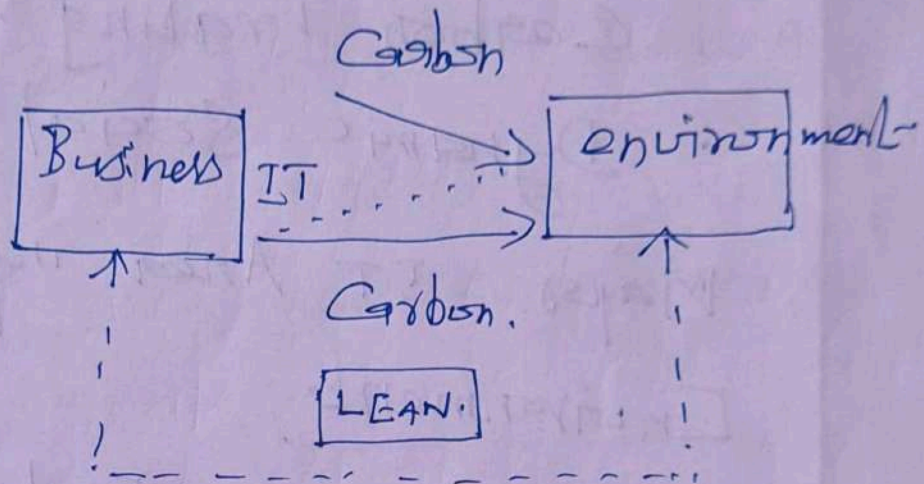 Carbon
Business
environment
IT
Carbon.
LEAN.